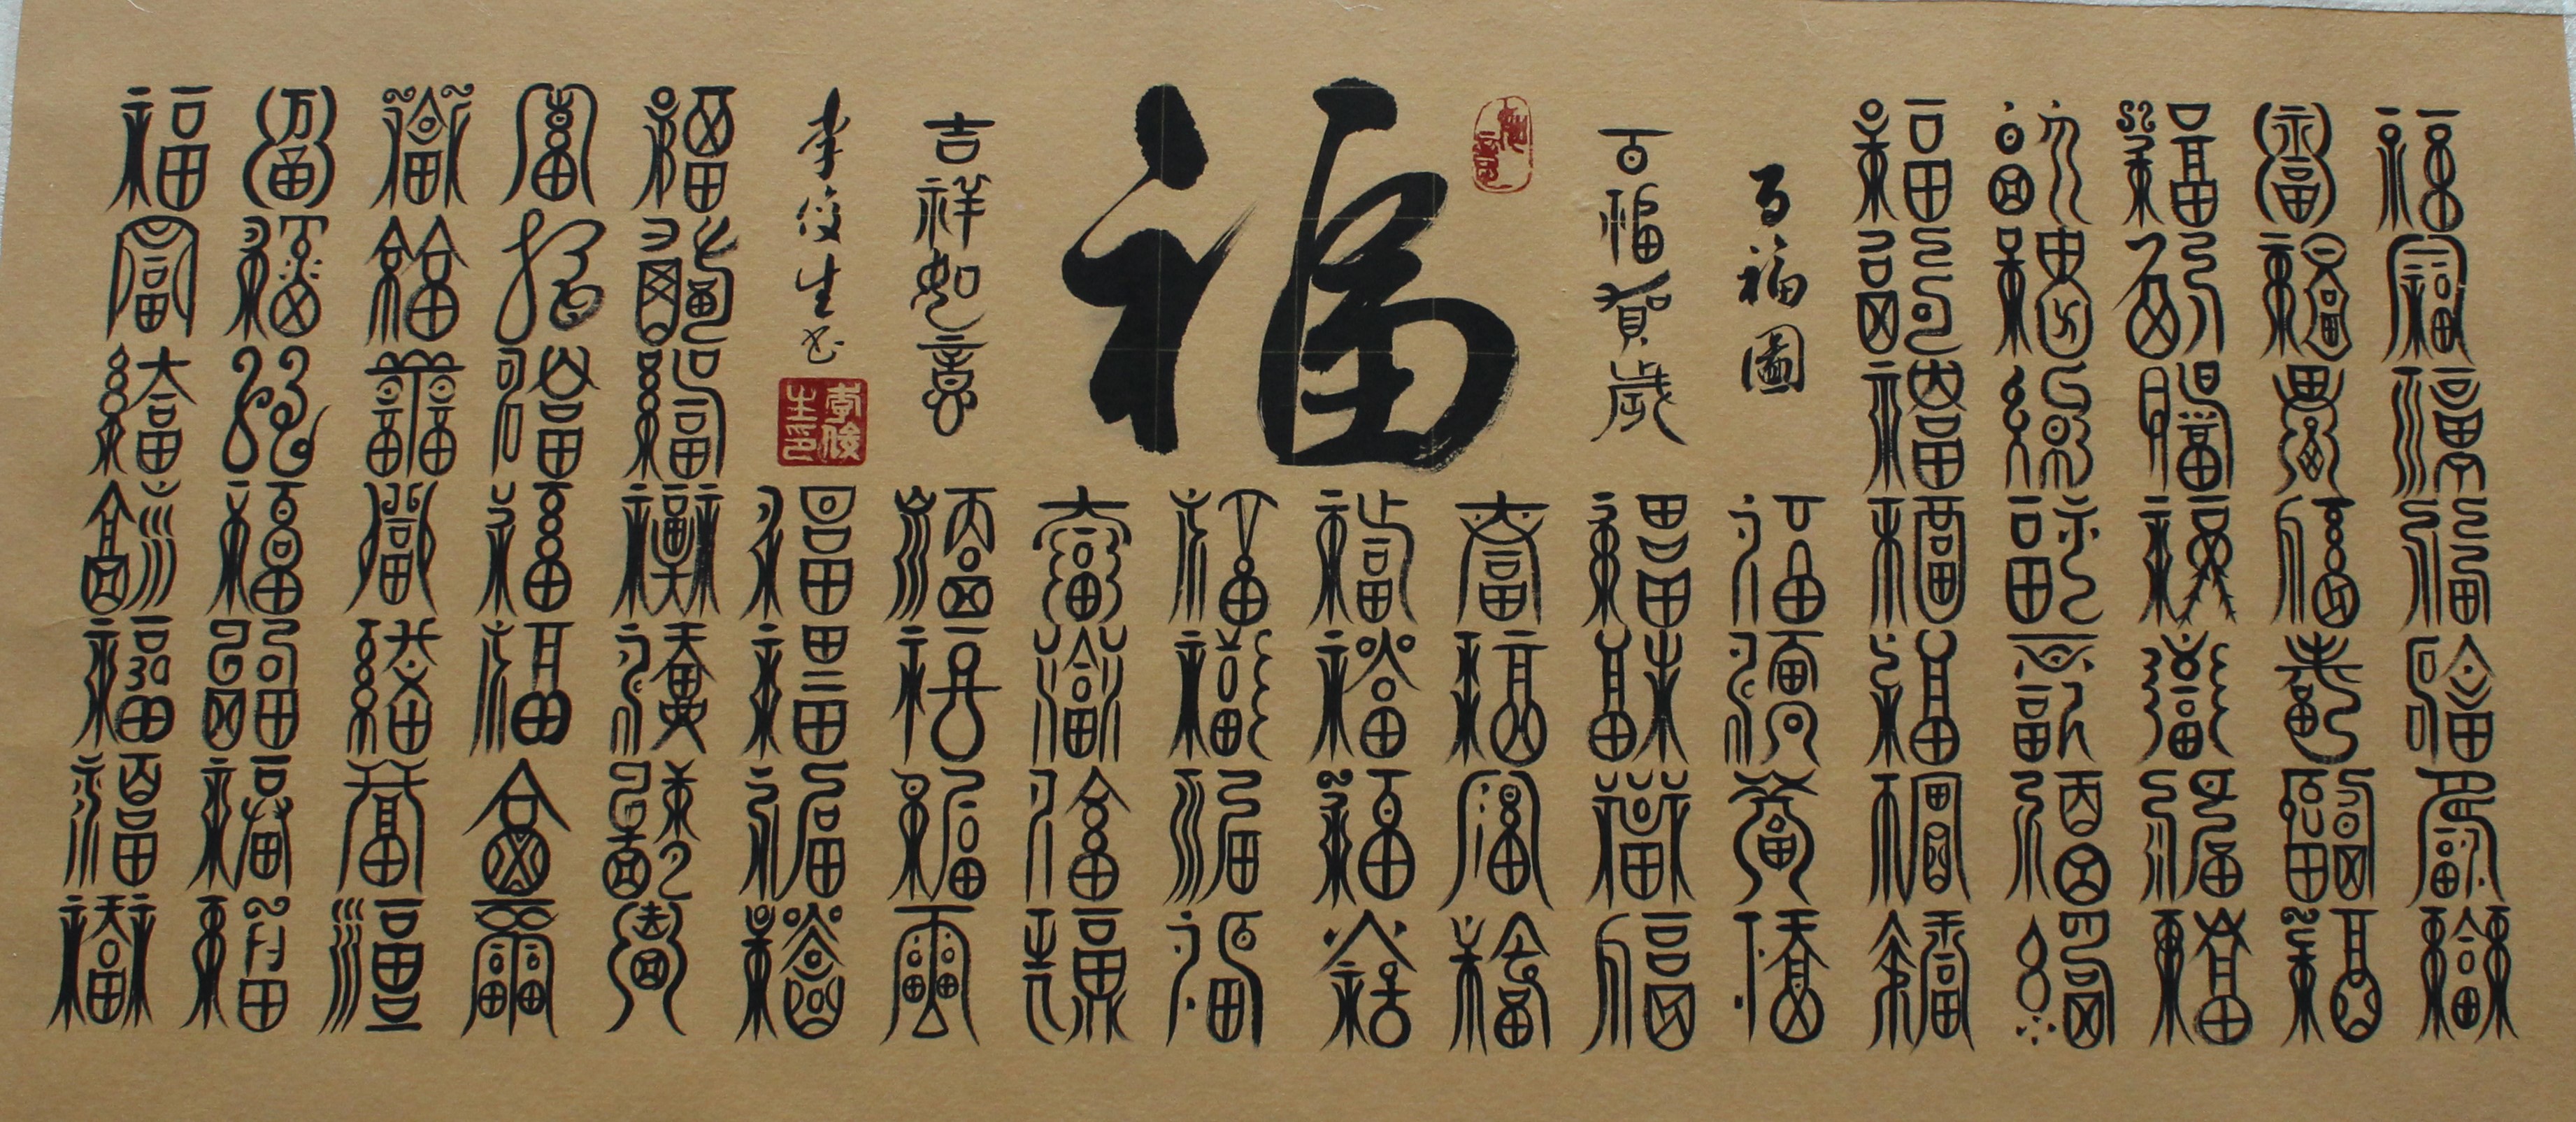 福福福福福福福
福福福福福福福
福福福福福福福
福福福福福福福
福福福福福福福
百福圖
百福賀歲
福
吉祥如意
李俊生书
李俊生印
福福福福
福福福福
福福福福
福福福福
福福福福
福福福福
福福福福
福福福福
福福福福福福福
福福福福福福福
福福福福福福福
福福福福福福福
福福福福福福福